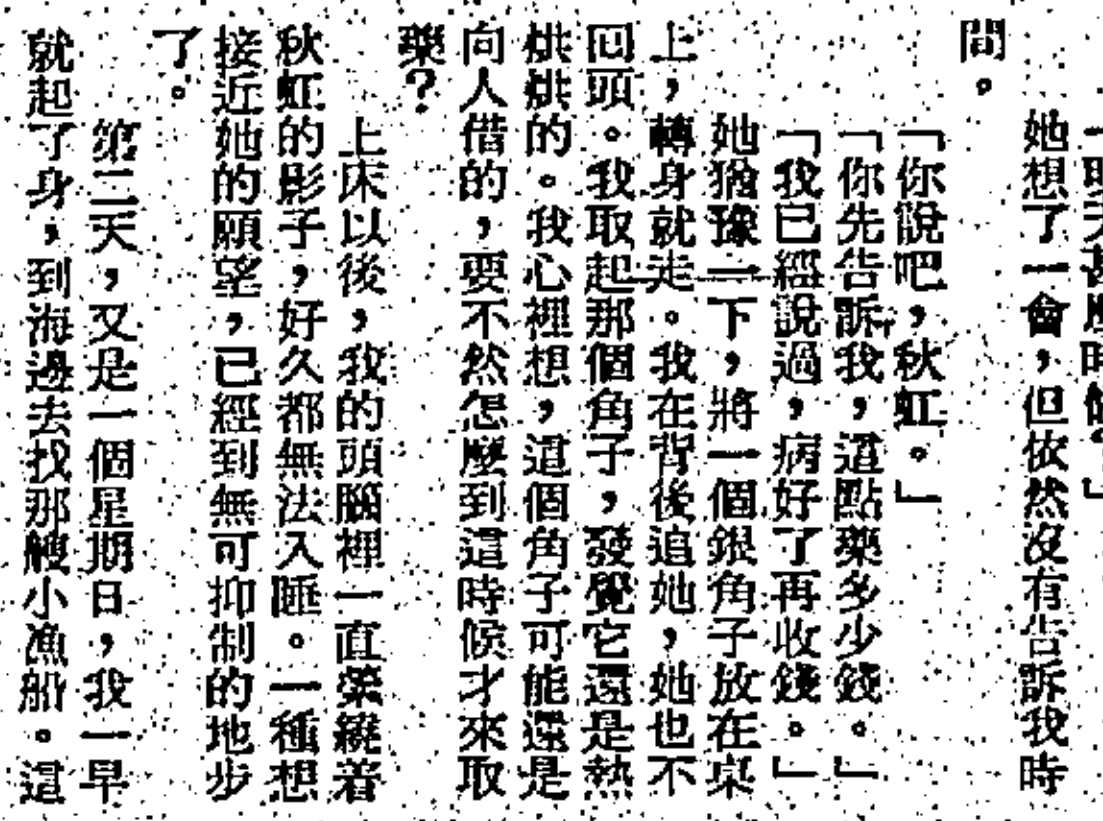 一明天甚麼時候？」
她想了一會，但依然沒有告訴我時
間。
「你說吧，秋虹。」
「你先告訴我，這點藥多少錢。」
「我已經說過，病好了再收錢。」
她猶豫一下，將一個銀角子放在桌
上，轉身就走。我在背後追她，她也不
回頭。我取起那個角子，發覺它還是熱
烘烘的。我心裡想，這個角子可能還是
向人借的，要不然怎麼到這時候才來取
藥？
上床以後，我的頭腦裡一直縈繞着
秋虹的影子，好久都無法入睡。一種想
接近她的願望，已經到無可抑制的地步
了。
第二天，又是一個星期日，我一早
就起了身，到海邊去找那艘小漁船。這